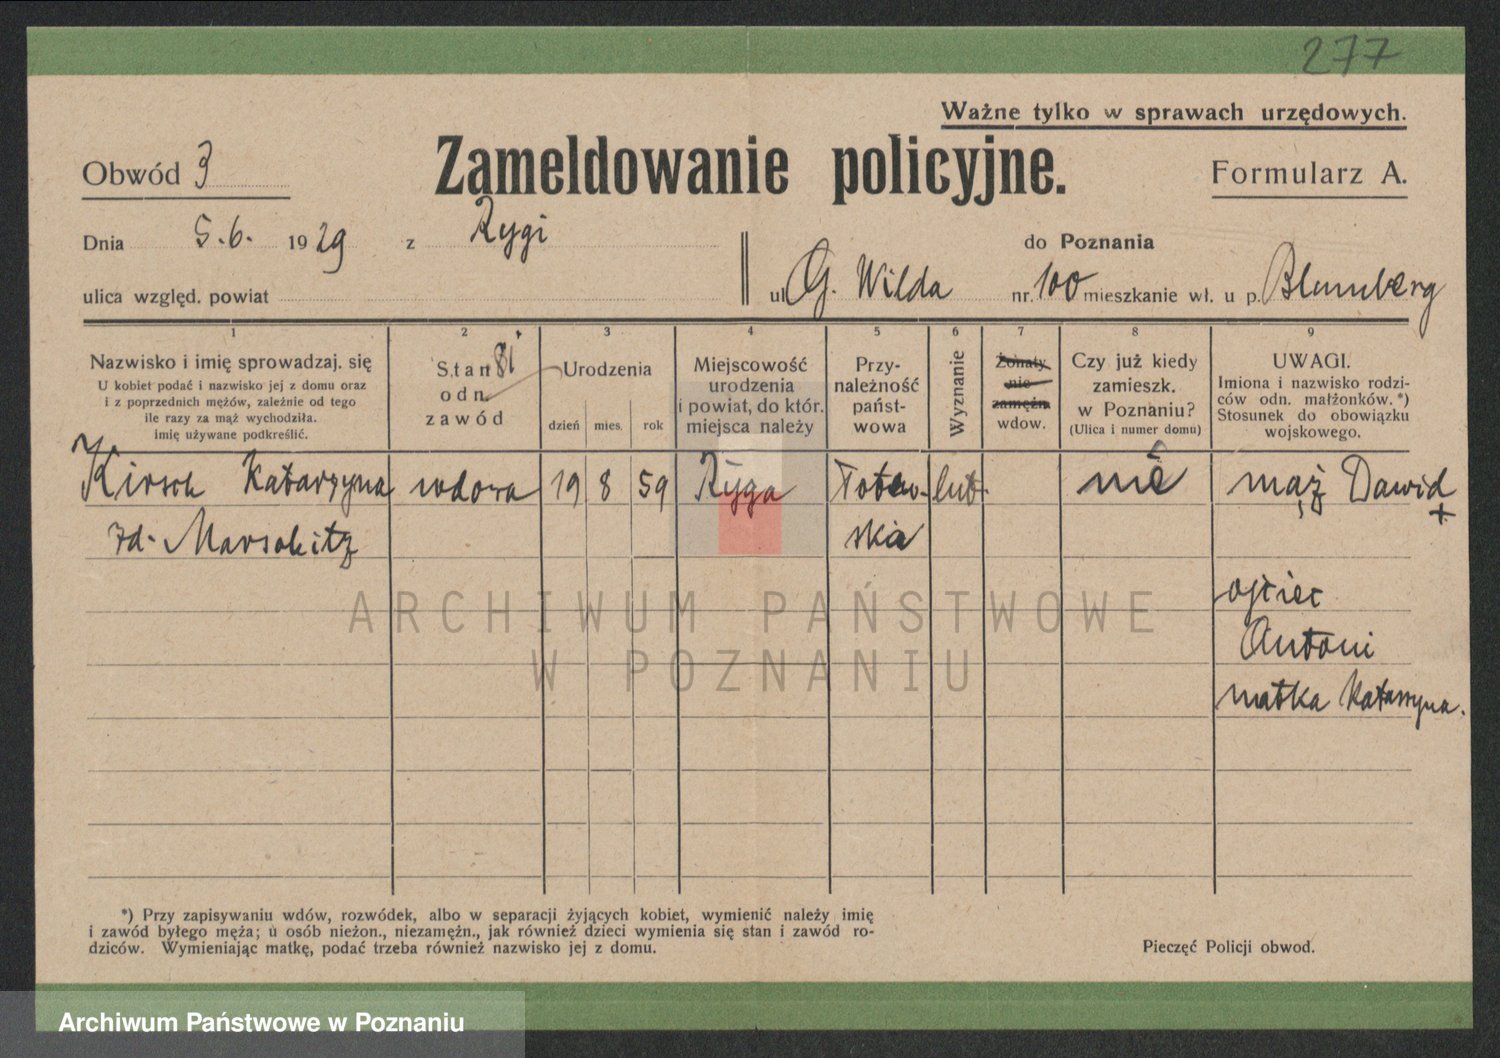 277
Ważne tylko w sprawach urzędowych.
Obwód 3
Zameldowanie policyjne.
Formularz A.
Dnia 5.6. 1929 z Rygi
do Poznania
ulica względ. powiat
ul. G. Wilda nr. 100 mieszkanie wł. u p. Blumberg
1 2 3 4 5 6 7 8 9
Nazwisko i imię sprowadzaj. się
U kobiet podać i nazwisko jej z domu oraz
i z poprzednich mężów, zależnie od tego
ile razy za mąż wychodziła.
imię używane podkreślić.
Stan
odn.
zawód
Urodzenia
dzień mies. rok
Miejscowość
urodzenia
i powiat, do któr.
miejsca należy
Przy-
należność
państ-
wowa
Wyznanie
Żonaty
nie-
zamężn.
wdow.
Czy już kiedy
zamieszk.
w Poznaniu?
(Ulica i numer domu)
UWAGI.
Imiona i nazwisko rodzi-
ców odn. małżonków.*)
Stosunek do obowiązku
wojskowego.
Kirsch Katarzyna wdowa 19 8 59 Ryga Łotew- lut. nie mąż Dawid +
zd. Marsohitz ska
ojciec
Antoni
matka Katarzyna.
ARCHIWUM PAŃSTWOWE
W POZNANIU
*) Przy zapisywaniu wdów, rozwódek, albo w separacji żyjących kobiet, wymienić należy imię
i zawód byłego męża; u osób nieżon., niezamężn., jak również dzieci wymienia się stan i zawód ro-
dziców. Wymieniając matkę, podać trzeba również nazwisko jej z domu.
Pieczęć Policji obwod.
Archiwum Państwowe w Poznaniu